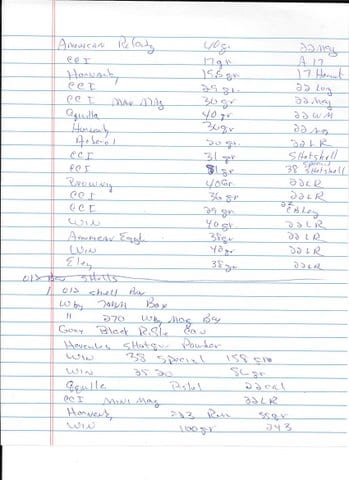 American 40gr. 22 Mag
CCI 17gr A 17
Hornady 15.5gr 17 Hornet
CCI 29gr. 22 Long
CCI Max Mag 30gr 22 Mag
Aguilla 40gr 22 WM
Hornady 30gr 22 Mag
Federal 20gr. 22 LR
CCI 31gr Shotshell
CCI 38 Special Shotshell
Browning 40Gr. 22LR
CCI 36gr 22LR
CCI 29gr CB Long
Win 40gr 22LR
American Eagle 38gr 22LR
Win 22LR
Eley 38gr 22LR
Old Box Shells
1 old shell Box
Wby Box
" 270 Wby Mag Box
Gray Black Rifle
Hercules Shotgun Powder
Win 38 Special 158gr
Win
Aguilla Pistol 22cal
CCI Mini Mag 22LR
Hornady 223 Rem 55gr
Win 100gr 243